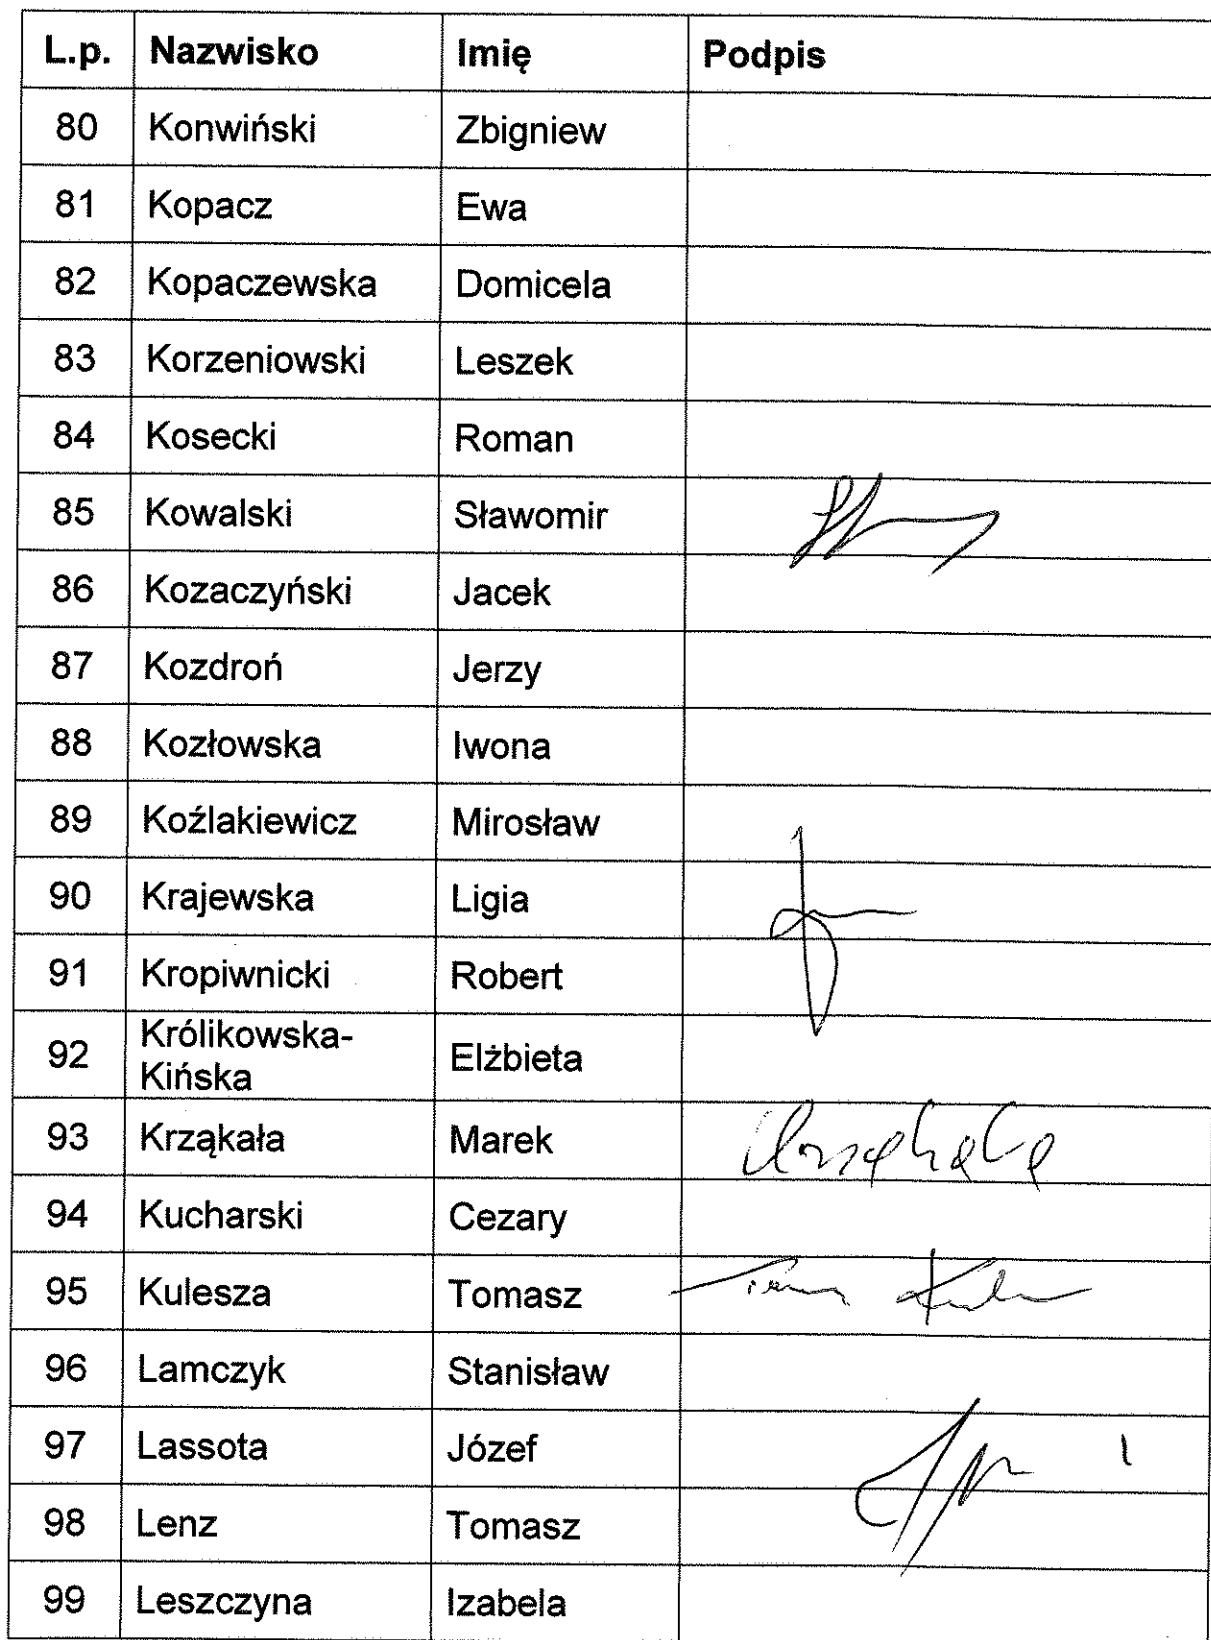 L.p. Nazwisko Imię Podpis
80 Konwiński Zbigniew
81 Kopacz Ewa
82 Kopaczewska Domicela
83 Korzeniowski Leszek
84 Kosecki Roman
85 Kowalski Sławomir
86 Kozaczyński Jacek
87 Kozdroń Jerzy
88 Kozłowska Iwona
89 Koźlakiewicz Mirosław
90 Krajewska Ligia
91 Kropiwnicki Robert
92 Królikowska-
Kińska Elżbieta
93 Krząkała Marek
94 Kucharski Cezary
95 Kulesza Tomasz
96 Lamczyk Stanisław
97 Lassota Józef
98 Lenz Tomasz
99 Leszczyna Izabela